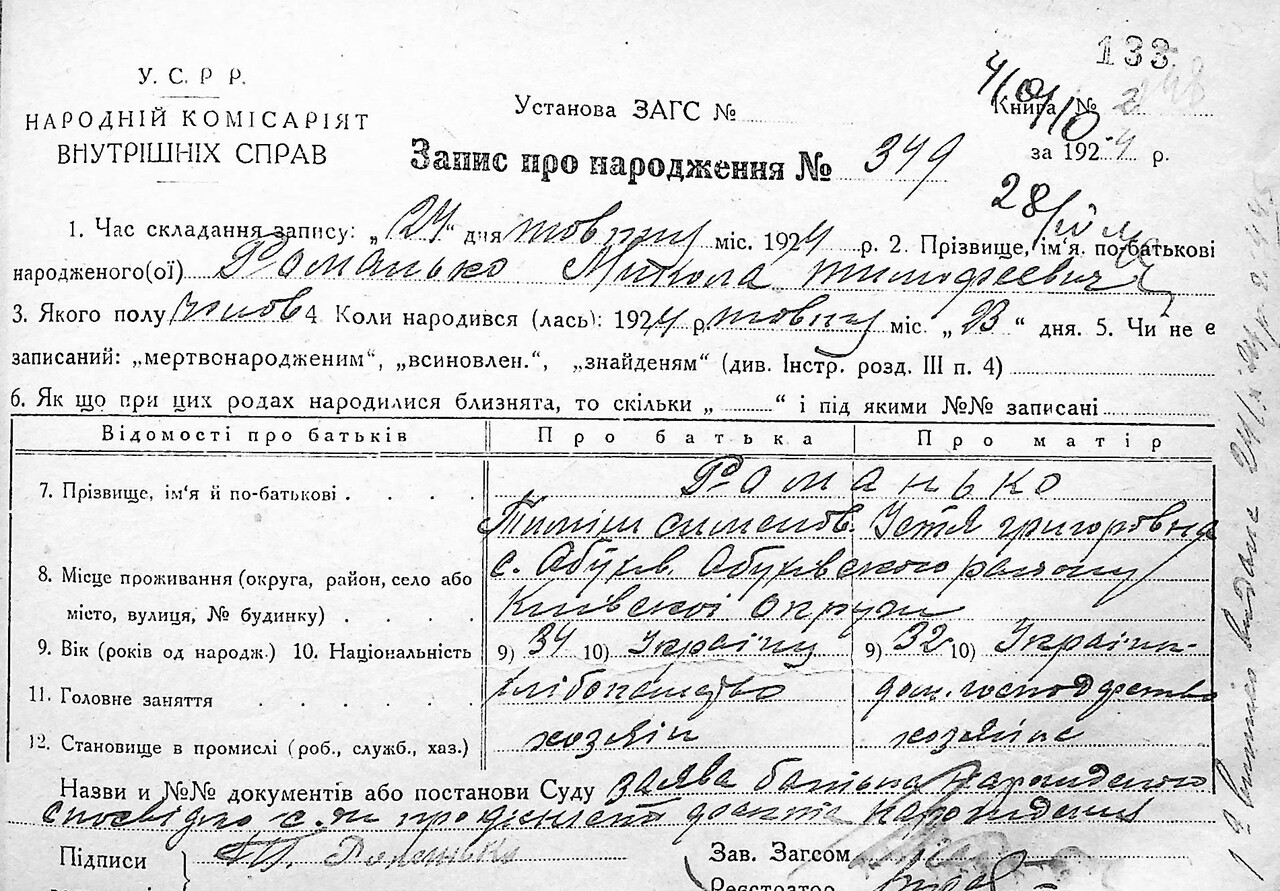 133
У. С. Р Р.
НАРОДНІЙ КОМІСАРІЯТ
ВНУТРІШНІХ СПРАВ
Установа ЗАГС №
Книга № 2
за 1924 р.
Запис про народження № 349
1. Час складання запису: „24“ дня жовтня міс. 1924 р. 2. Прізвище, ім'я, по-батькові
народженого(ої) Романько Микола Тимофеевич
3. Якого полу чолов 4 Коли народився (лась): 1924 р жовтня міс. „23“ дня. 5. Чи не є
записаний: „мертвонародженим“, „всиновлен.“, „знайденям“ (див. Інстр. розд. III п. 4)
6. Як що при цих родах народилися близнята, то скільки „ “ і під якими №№ записані
Відомості про батьків Про батька Про матір
7. Прізвище, ім'я й по-батькові Романько
Тиміш Сименов. Устя Григоровна
8. Місце проживання (округа, район, село або с. Обухів Обухівского району
місто, вулиця, № будинку) Київскоі округи
9. Вік (років од народж.) 10. Національність 9) 34 10) Україну 9) 32 10) Україн-
11. Головне заняття хлібопашство дом. господарство
12. Становище в промислі (роб., служб., хаз.) хозяін хозяйка
Назви и №№ документів або постанови Суду заява батька
народження
Підписи Т. Романько Зав. Загсом
Реєстратор